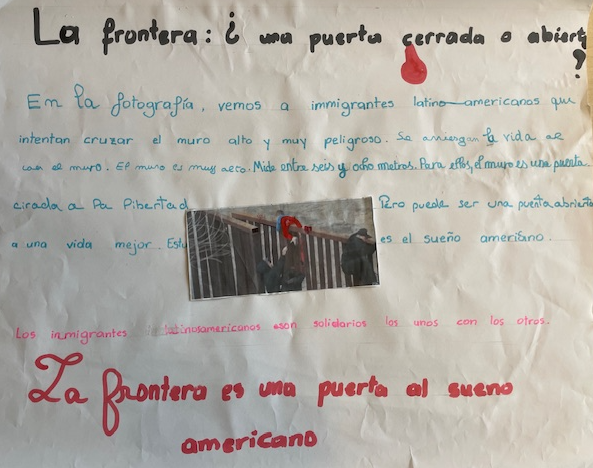 La frontera: ¿ una puerta cerrada o abiert
?
En la fotografía, vemos a immigrantes latino-americanos que
intentan cruzar el muro alto y muy peligroso. Se arriesgan la vida al
el muro. El muro es muy Mide entre seis y ocho metros. Para ellos, el muro es una puerta
cirada a la libertad Pero puede ser una puerta abierta
a una vida mejor. Est es el sueño americano.
Los inmigrantes latinosamericanos son solidarios los unos con los otros.
La frontera es una puerta al sueno
americano